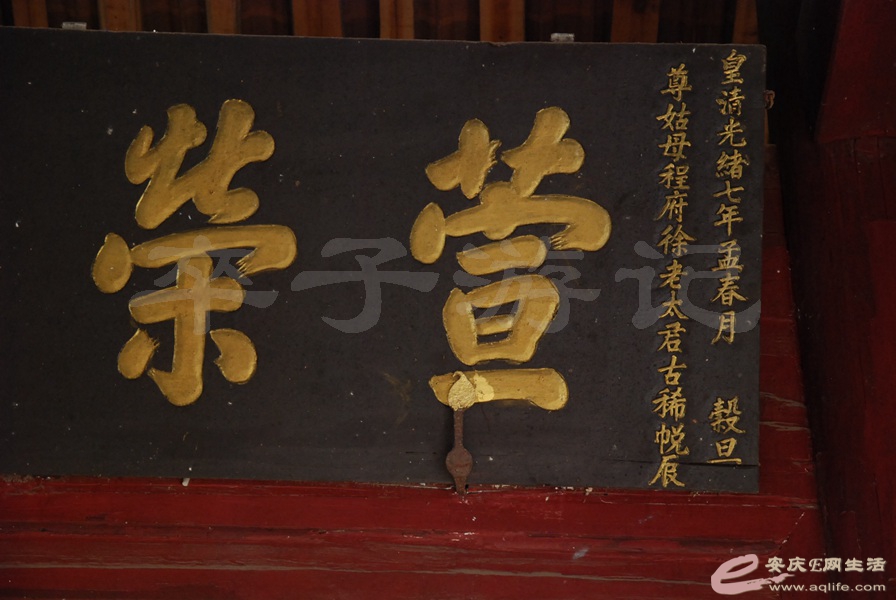 皇清光緒七年孟春月 穀旦
尊姑母程府徐老太君古稀帨辰
萱榮
卒子游记
安庆E网生活
www.aqlife.com